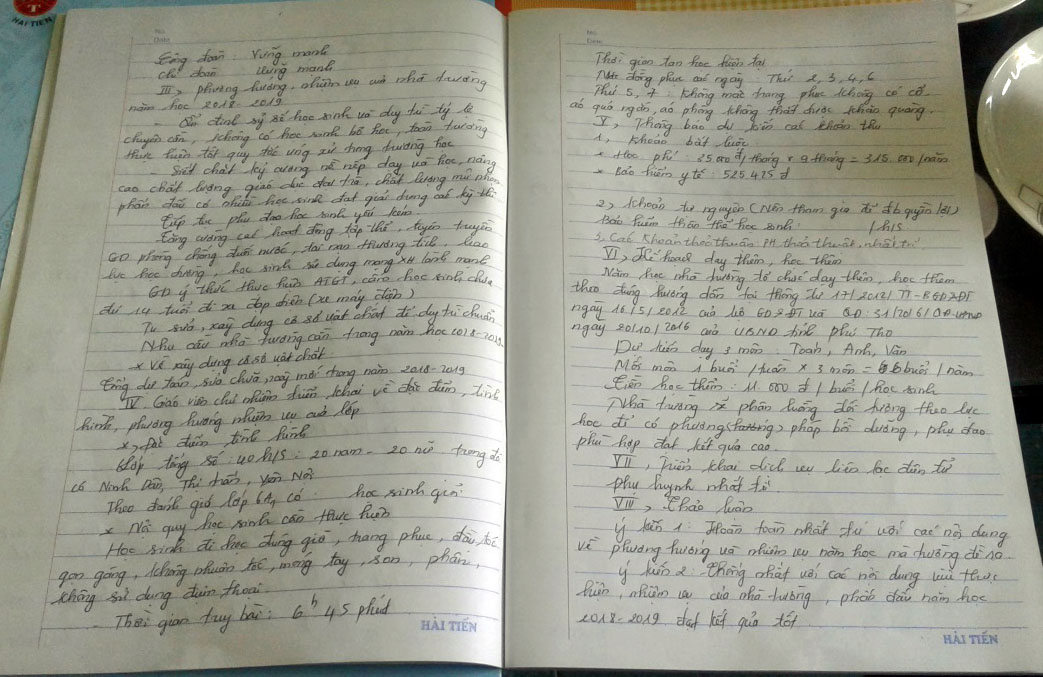 HẢI TIẾN
No
Date
Công đoàn: Vững mạnh
Chi đoàn: Vững mạnh
III, Phương hướng, nhiệm vụ của nhà trường
năm học 2018-2019
- Ổn định sỹ số học sinh và duy trì tỷ lệ
chuyên cần, không có học sinh bỏ học, toàn trường
thực hiện tốt quy tắc ứng xử trong trường học
Siết chặt kỷ cương nề nếp dạy và học, nâng
cao chất lượng giáo dục đại trà, chất lượng mũi nhọn
phấn đấu có nhiều học sinh đạt giải trong các kỳ thi
Tiếp tục phụ đạo học sinh yếu kém
Tăng cường các hoạt động tập thể, tuyên truyền
GD phòng chống đuối nước, tai nạn thương tích, bạo
lực học đường, học sinh sử dụng mạng XH lành mạnh
GD ý thức thực hiện ATGT, cấm học sinh chưa
đủ 14 tuổi đi xe đạp điện (xe máy điện)
Tu sửa, xây dựng cơ sở vật chất để duy trì chuẩn
Nhu cầu nhà trường cần trong năm học 2018-2019
* Về xây dựng cơ sở vật chất
Tổng dự toán, sửa chữa, xây mới trong năm 2018-2019
IV Giáo viên chủ nhiệm triển khai về đặc điểm, tình
hình, phương hướng nhiệm vụ của lớp
*, Đặc điểm, tình hình
Lớp tổng số: 40 h/s: 20 nam - 20 nữ trong đó
có Ninh Dân, Thị trấn, Yên Nội
Theo đánh giá lớp 6A1 có học sinh giỏi
* Nội quy học sinh cần thực hiện
Học sinh đi học đúng giờ, trang phục, đầu tóc
gọn gàng, không nhuộm tóc, móng tay, son, phấn,
không sử dụng điện thoại.
- Thời gian truy bài: 6h 45 phút
HẢI TIẾN
No
Date
Thời gian tan học hiện tại
Mặc đồng phục các ngày: Thứ 2, 3, 4, 6
Thứ 5, 7: Không mặc trang phục không có cổ
áo quá ngắn, áo phông không thắt được khăn quàng.
V, Thông báo dự kiến các khoản thu
1, Khoản bắt buộc
* Học phí: 35 000 đ/tháng x 9 tháng = 315.000/năm
* Bảo hiểm y tế: 525 425 đ
2, Khoản tự nguyện (Nên tham gia để đb quyền lợi)
Bảo hiểm thân thể học sinh: /h/s
3, Các khoản thỏa thuận: PH thỏa thuận, nhất trí
VI, Kế hoạch dạy thêm, học thêm
Năm học nhà trường tổ chức dạy thêm, học thêm
theo đúng hướng dẫn tại thông tư 17/2012/TT-BGD&ĐT
ngày 16/5/2012 của bộ GD&ĐT và QĐ: 31/2016/QĐ-UBND
ngày 20/10/2016 của UBND tỉnh Phú Thọ
Dự kiến dạy 3 môn: Toán, Anh, Văn
Mỗi môn 1 buổi/tuần x 3 môn = buổi/năm
Tiền học thêm: 11.000 đ/buổi/học sinh
Nhà trường sẽ phân luồng đối tượng theo lực
học để có phương (hướng) pháp bồi dưỡng, phụ đạo
phù hợp đạt kết quả cao.
VII, Triển khai dịch vụ liên lạc điện tử
Phụ huynh nhất trí
VIII, Thảo luận
Ý kiến 1: Hoàn toàn nhất trí với các nội dung
về phương hướng và nhiệm vụ năm học mà trường đề ra.
Ý kiến 2: Thống nhất với các nội dung thực
hiện, nhiệm vụ của nhà trường, phấn đấu năm học
2018-2019 đạt kết quả tốt.
HẢI TIẾN